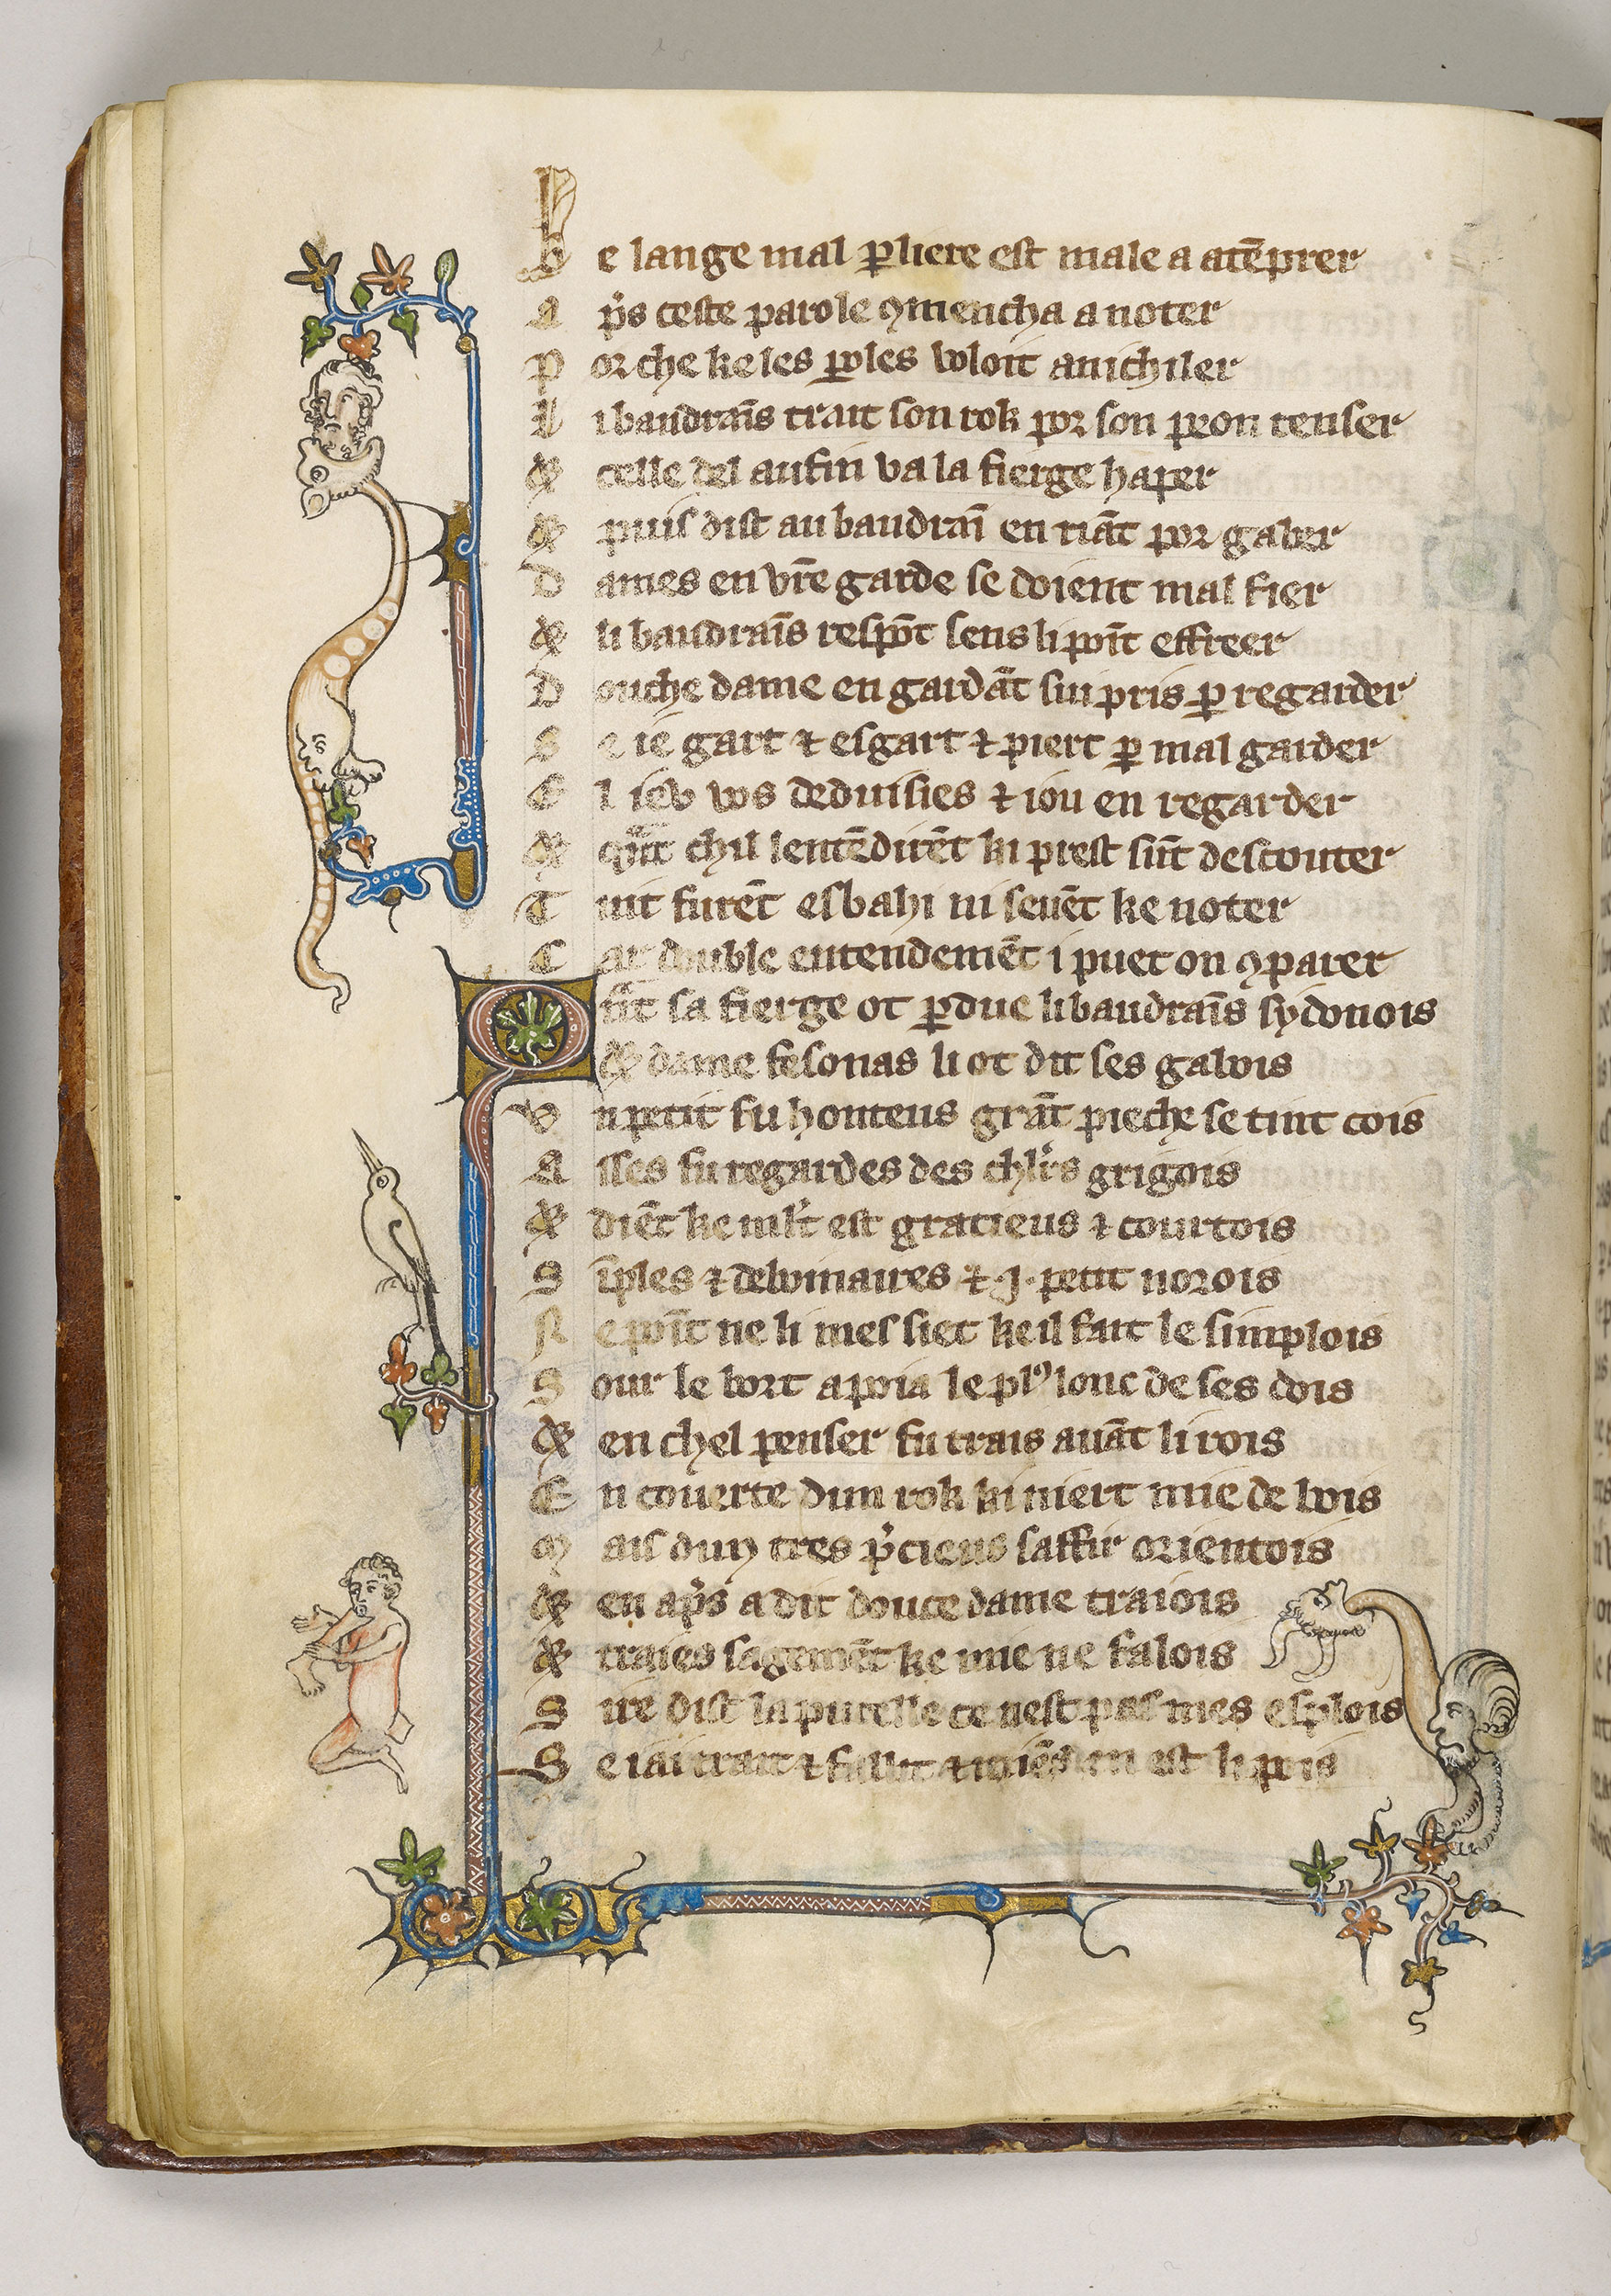 De lange mal pliere est male a atēprer
A pˢs ceste parole ꝯmencha a noter
P or che ke les ꝑoles voloit anichiler
L i baudraīs trait son rok por son peon tenser
⁊ celle del aufin va la fierge haper
⁊ puis dist au baudraī en riāt por gaber
D ames en vr̄e garde se doient mal fier
⁊ li baudraīs respōt sens li poīt effreer
D ouche dame en gardāt sui pris ꝑ regarder
S e ie gart ⁊ esgart ⁊ piert ꝑ mal garder
E l ieu vos deduisies ⁊ iou en regarder
⁊ qᵃnt chil lentēdirēt ki prest sūt descouter
T uit furēt esbahi ni seuēt ke noter
C ar double entendemēt i puet on ꝯparer
Q nᵃt sa fierge ot ꝑdue li baudraīs sydonois
⁊ dame fesonas li ot dit ses gabois
V n petit fu honteus grāt pieche se tint cois
A sses fu regardes des chlˢrs grigois
⁊ diēt ke ml̄t est gracieus ⁊ courtois
S īples ⁊ debonaires ⁊ .J. petit norois
N e poīt ne li mes siet ke il fait le simplois
S our le bort apoia le plꝰ lonc de ses dois
⁊ en chel penser fu trais auāt li rois
E n couerte dun rok ki niert mie de bois
M ais dun tres pˢcieus saffir orientois
⁊ en apˢs a dit douce dame traiois
⁊ traies sagemēt ke mie ne falois
S ire dist la pucelle ce nest pas mes esplois
S e iai trait ⁊ en est li pois